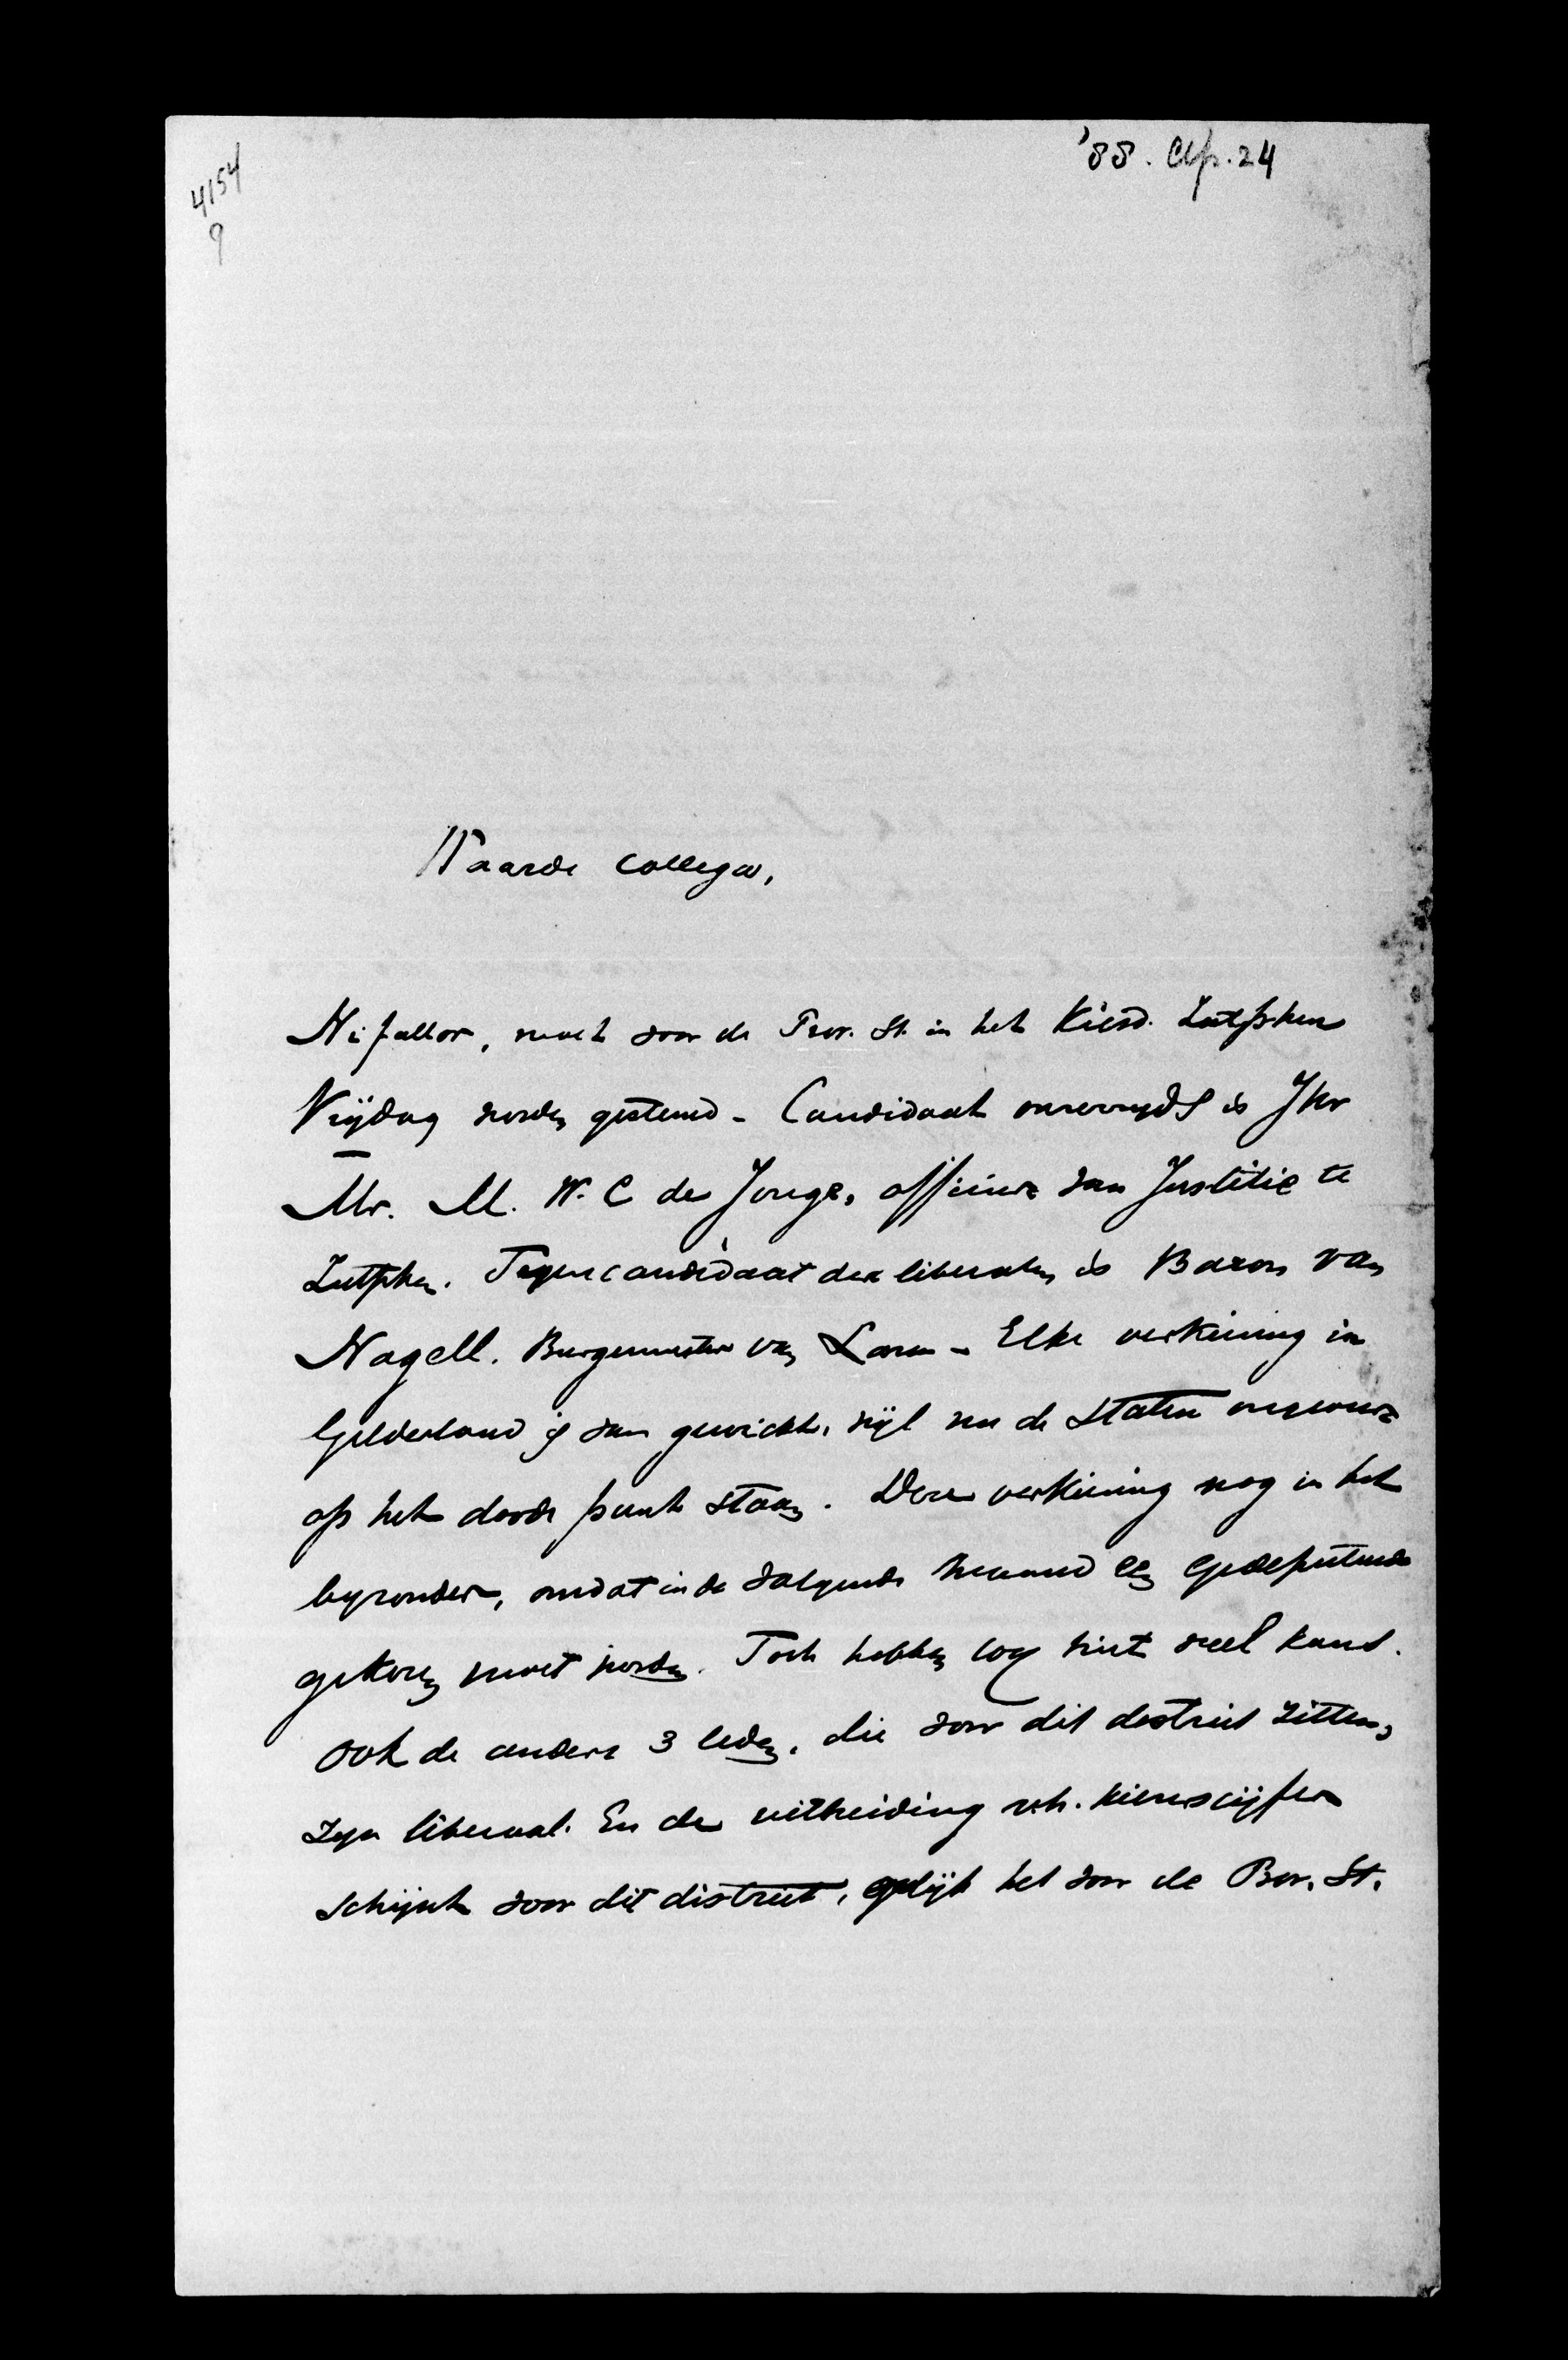 '88. Apr. 24
4154
9
Waarde Collega,
Ni fallor, moet voor de Prov. St. in het Kiesd. Zutphen
Vrijdag worden gestemd - Candidaat onzerzyds is Jhr
Mr. M. W. C de Jonge, officier van Justitie te
Zutphen. Tegencandidaat der liberalen is Baron van
Nagell. Burgemeester van Laren - Elke verkiezing in
Gelderland is van gewicht, wijl nu de Staten ongeveer
op het doode punt staan. Deze verkiezing nog in het
byzonder, omdat in de volgende een Gedeputeerde
gekozen moet worden. Toch hebben wy niet veel kans.
Ook de andere 3 leden, die voor dit district zitten,
zyn liberaal. En de uitbreiding v.h. kiezerscijfer
schijnt voor dit district, gelijk het voor de Prov. St.